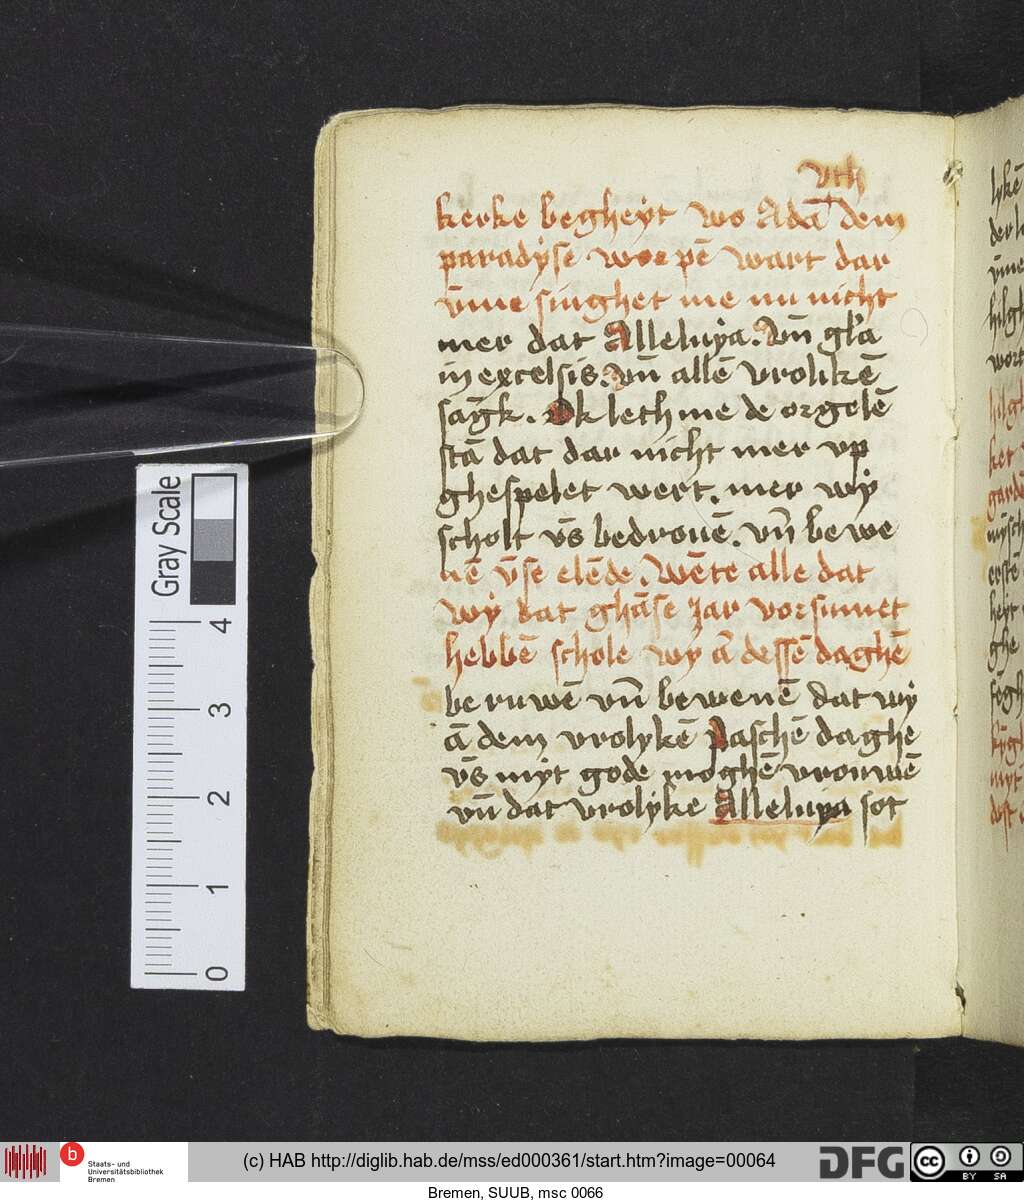 vth
kerke begheyt wo Adā dem
paradyse worpē wart dar
v̄me singhet me nu nicht
mer dat Alleluya. Vn̄ gl'a
in excelsis. vn̄ allē vrolikē
sāgk. Ok leth me de orgelē
stā dat dar nicht mer vp
ghespelet wert. mer wy
scholt v̄s bedrouē. vn̄ be we
nē v̄se elēde. Wēte alle dat
wy dat ghāse Jar vorsumet
hebbē schole wy ā dessē daghē
be ruwē vn̄ bewenē dat wy
ā dem vrolykē paschē daghe
v̄s myt gode moghē vrouwē
vn̄ dat vrolyke Alleluya sot
Gray Scale
4
3
2
1
0
lykē
der
v̄me
hilgh
wort
ket
myt
b Staats- und
Universitätsbibliothek
Bremen
(c) HAB http://diglib.hab.de/mss/ed000361/start.htm?image=00064
DFG
cc BY SA
Bremen, SUUB, msc 0066